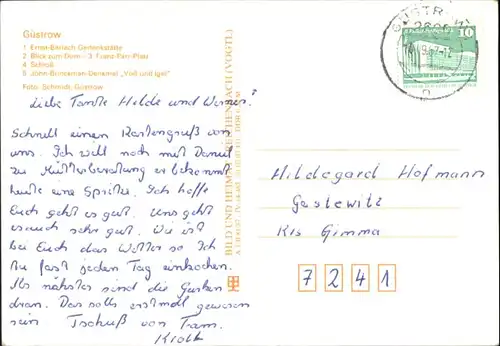 Güstrow
1 Ernst-Barlach Gedenkstätte
2 Blick zum Dom - 3 Franz-Parr-Platz
4 Schloß
5 John-Brinckman-Denkmal "Voß und Igel"
Foto: Schmidt, Güstrow
Liebe Tante Hilde und Werner!
Schnell einen Kartengruß von
uns. Ich will noch mit Daniel
zu Mütterberatung er bekommt
heute eine Spritze. Ich hoffe
Euch geht es gut. Uns geht
es auch sehr gut. Wie ist
bei Euch das Wetter so Ich
tu fast jeden Tag einkochen.
Als nächstes sind die Gurken
dran. Das solls erstmal gewesen
sein Tschüß von Fam.
BILD UND HEIMAT REICHENBACH (VOGTL)
GÜSTR
10
Hildegard Hofmann
Gestewitz
Krs Grimma
7241